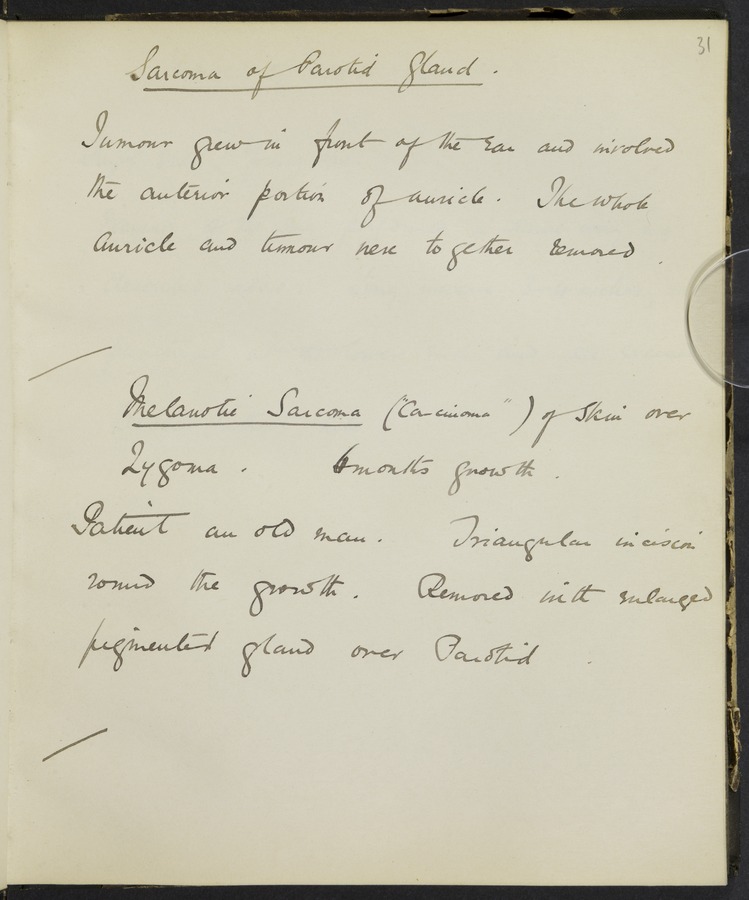 31
Sarcoma of Parotid Gland.
Tumour grew in front of the Ear and involved
the anterior portion of auricle. The whole
Auricle and tumour were together removed.
Melanotic Sarcoma ("Carcinoma") of Skin over
Zygoma. 6 months growth.
Patient an old man. Triangular incision
round the growth. Removed with enlarged
pigmented gland over Parotid.